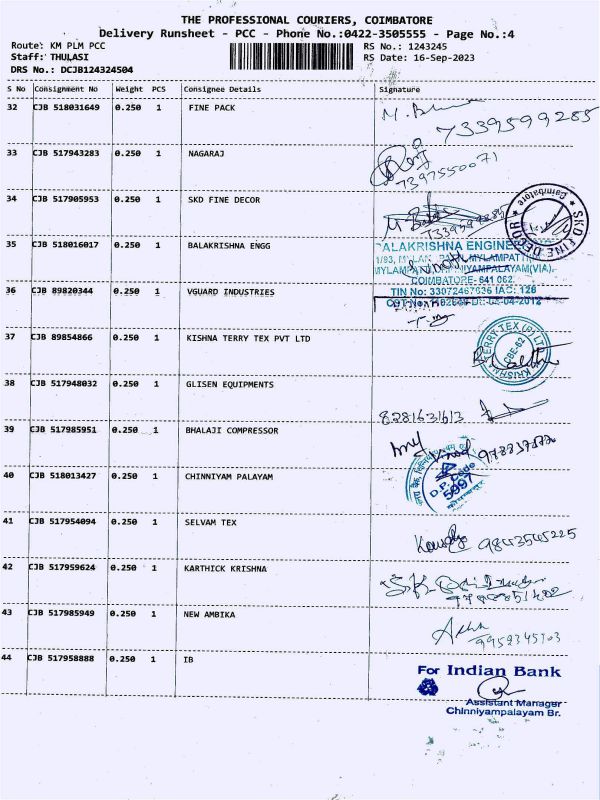 THE PROFESSIONAL COURIERS, COIMBATORE
Delivery Runsheet - PCC - Phone No.:0422-3505555 - Page No.:4
Route: KM PLM PCC
RS No.: 1243245
Staff: THULASI
RS Date: 16-Sep-2023
DRS No.: DCJB124324504
S No Consignment No Weight PCS Consignee Details Signature
32 CJB 518031649 0.250 1 FINE PACK
7339599285
33 CJB 517943283 0.250 1 NAGARAJ
7397550071
34 CJB 517905953 0.250 1 SKD FINE DECOR
SKD FINE DECOR * Coimbatore *
35 CJB 518016017 0.250 1 BALAKRISHNA ENGG
ALAKRISHNA ENGINE
COIMBATORE- 641 062.
36 CJB 89820344 0.250 1 VGUARD INDUSTRIES
TIN No: 33072467636 IAC: 126
37 CJB 89854866 0.250 1 KISHNA TERRY TEX PVT LTD
KRISHNA TERRY TEX (P) LT
CBE-62
38 CJB 517948032 0.250 1 GLISEN EQUIPMENTS
8281631613
39 CJB 517985951 0.250 1 BHALAJI COMPRESSOR
40 CJB 518013427 0.250 1 CHINNIYAM PALAYAM
D.P. Code
5997
41 CJB 517954094 0.250 1 SELVAM TEX
9843545225
42 CJB 517959624 0.250 1 KARTHICK KRISHNA
43 CJB 517985949 0.250 1 NEW AMBIKA
9952345103
44 CJB 517958888 0.250 1 IB
For Indian Bank
Assistant Manager
Chinniyampalayam Br.